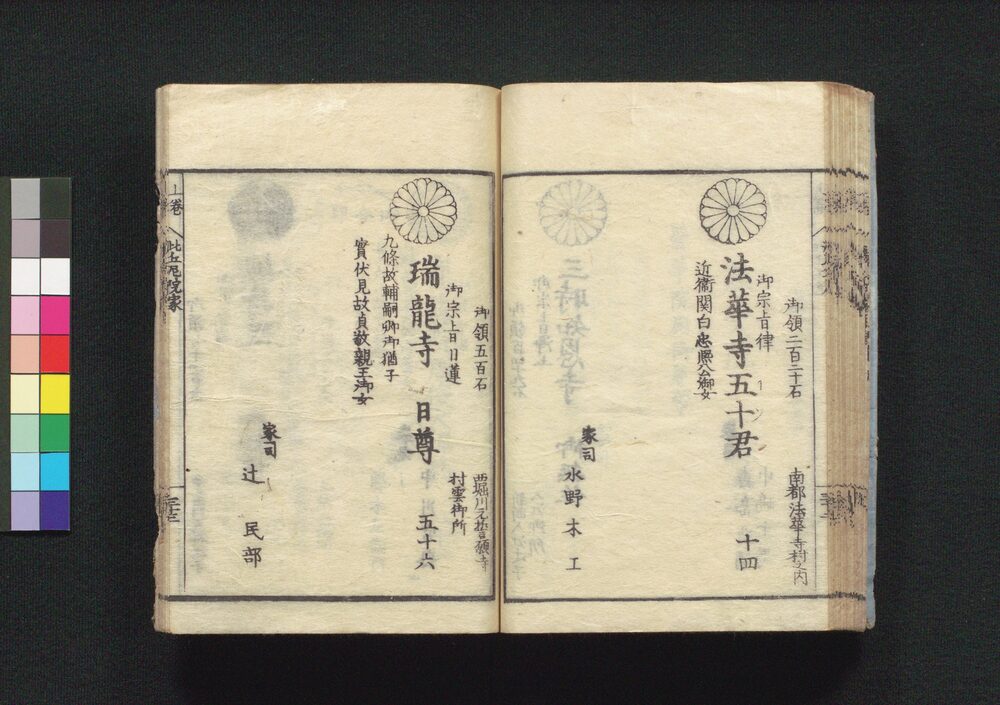 御領二百二十石
御宗旨律
南都法華寺村之内
法華寺五十君
十四
近衛関白忠煕公御女
家司
水野木工
御領五百石
御宗旨日蓮
西堀川元誓願寺
村雲御所
瑞龍寺 日尊
五十六
九條故輔嗣卿御猶子
實伏見故貞敬親王御女
家司
辻 民部
上巻
比丘尼院家